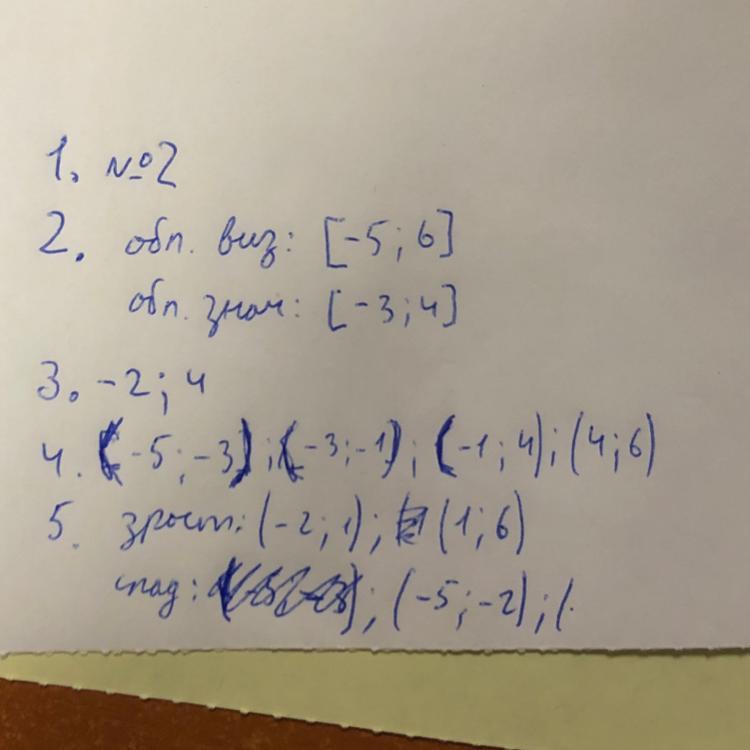 1. №2
2. обл. виз: [-5; 6]
обл. знач: [-3; 4]
3. -2; 4
4. (-5; -3); (-3; -1); (-1; 4); (4; 6)
5. зрост: (-2; 1); (1; 6)
спад: ; (-5; -2); (-